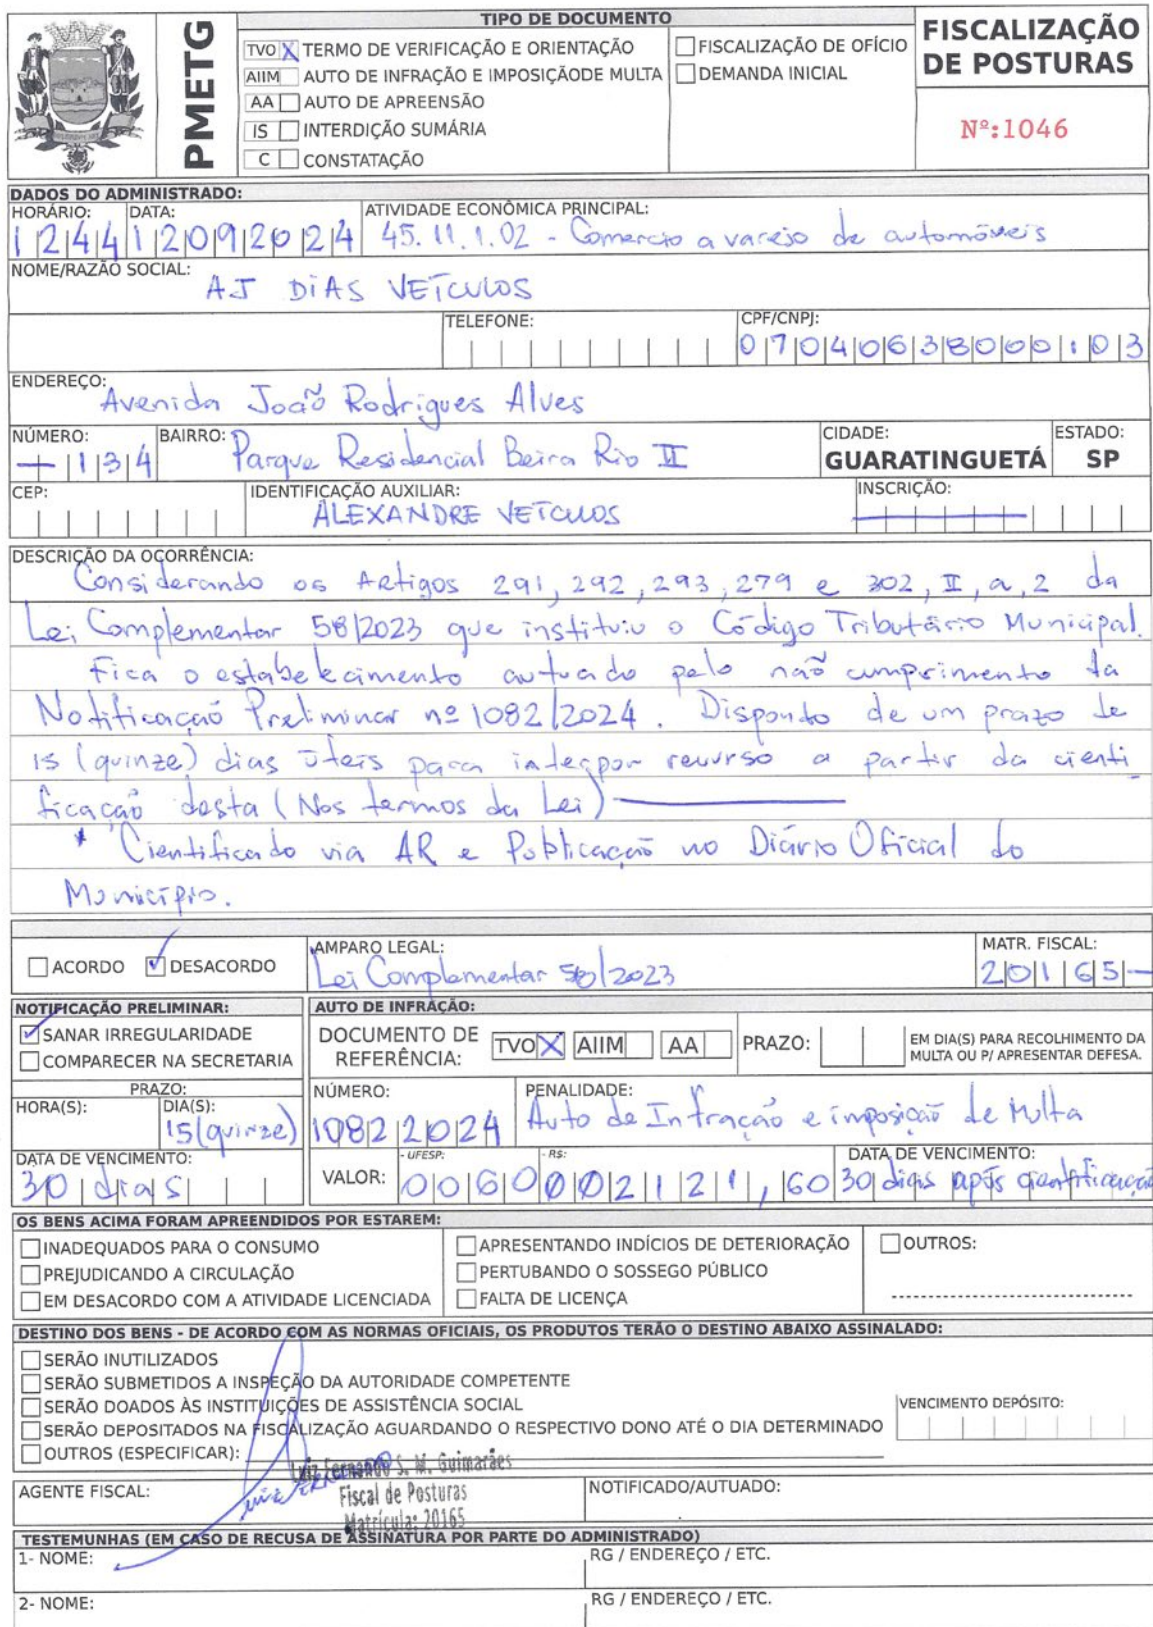 PMETG
TIPO DE DOCUMENTO
TVO X TERMO DE VERIFICAÇÃO E ORIENTAÇÃO
AIIM AUTO DE INFRAÇÃO E IMPOSIÇÃODE MULTA
AA AUTO DE APREENSÃO
IS INTERDIÇÃO SUMÁRIA
C CONSTATAÇÃO
FISCALIZAÇÃO DE OFÍCIO
DEMANDA INICIAL
FISCALIZAÇÃO
DE POSTURAS
Nº:1046
DADOS DO ADMINISTRADO:
HORÁRIO: DATA: ATIVIDADE ECONÔMICA PRINCIPAL:
1244 12092024 45.11.1.02 - Comercio a varejo de automóveis
NOME/RAZÃO SOCIAL:
AJ DIAS VEÍCULOS
TELEFONE: CPF/CNPJ:
07040638000103
ENDEREÇO:
Avenida João Rodrigues Alves
NÚMERO: BAIRRO: CIDADE: ESTADO:
134 Parque Residencial Beira Rio II GUARATINGUETÁ SP
CEP: IDENTIFICAÇÃO AUXILIAR: INSCRIÇÃO:
ALEXANDRE VEÍCULOS
DESCRIÇÃO DA OCORRÊNCIA:
Considerando os Artigos 291, 292, 293, 279 e 302, II, a, 2 da
Lei Complementar 58/2023 que instituiu o Código Tributário Municipal.
Fica o estabelecimento autuado pelo não cumprimento da
Notificação Preliminar nº 1082/2024. Dispondo de um prazo de
15 (quinze) dias úteis para interpor recurso a partir da cienti
ficação desta (Nos termos da Lei)
* Cientificado via AR e Publicação no Diário Oficial do
Município.
ACORDO DESACORDO
AMPARO LEGAL:
Lei Complementar 58/2023
MATR. FISCAL:
20165-
NOTIFICAÇÃO PRELIMINAR:
SANAR IRREGULARIDADE
COMPARECER NA SECRETARIA
PRAZO:
HORA(S): DIA(S):
15(quinze)
DATA DE VENCIMENTO:
30 dias
AUTO DE INFRAÇÃO:
DOCUMENTO DE
REFERÊNCIA:
TVO X AIIM AA PRAZO:
EM DIA(S) PARA RECOLHIMENTO DA
MULTA OU P/ APRESENTAR DEFESA.
NÚMERO: PENALIDADE:
10822024 Auto de Infração e imposição de Multa
- UFESP: - R$: DATA DE VENCIMENTO:
VALOR: 0060 0002121,60 30 dias após cientificação
OS BENS ACIMA FORAM APREENDIDOS POR ESTAREM:
INADEQUADOS PARA O CONSUMO
PREJUDICANDO A CIRCULAÇÃO
EM DESACORDO COM A ATIVIDADE LICENCIADA
APRESENTANDO INDÍCIOS DE DETERIORAÇÃO
PERTUBANDO O SOSSEGO PÚBLICO
FALTA DE LICENÇA
OUTROS:
DESTINO DOS BENS - DE ACORDO COM AS NORMAS OFICIAIS, OS PRODUTOS TERÃO O DESTINO ABAIXO ASSINALADO:
SERÃO INUTILIZADOS
SERÃO SUBMETIDOS A INSPEÇÃO DA AUTORIDADE COMPETENTE
SERÃO DOADOS ÀS INSTITUIÇÕES DE ASSISTÊNCIA SOCIAL
SERÃO DEPOSITADOS NA FISCALIZAÇÃO AGUARDANDO O RESPECTIVO DONO ATÉ O DIA DETERMINADO
OUTROS (ESPECIFICAR):
VENCIMENTO DEPÓSITO:
Luiz Fernando S. M. Guimarães
Fiscal de Posturas
Matrícula: 20165
AGENTE FISCAL: NOTIFICADO/AUTUADO:
TESTEMUNHAS (EM CASO DE RECUSA DE ASSINATURA POR PARTE DO ADMINISTRADO)
1- NOME: RG / ENDEREÇO / ETC.
2- NOME: RG / ENDEREÇO / ETC.